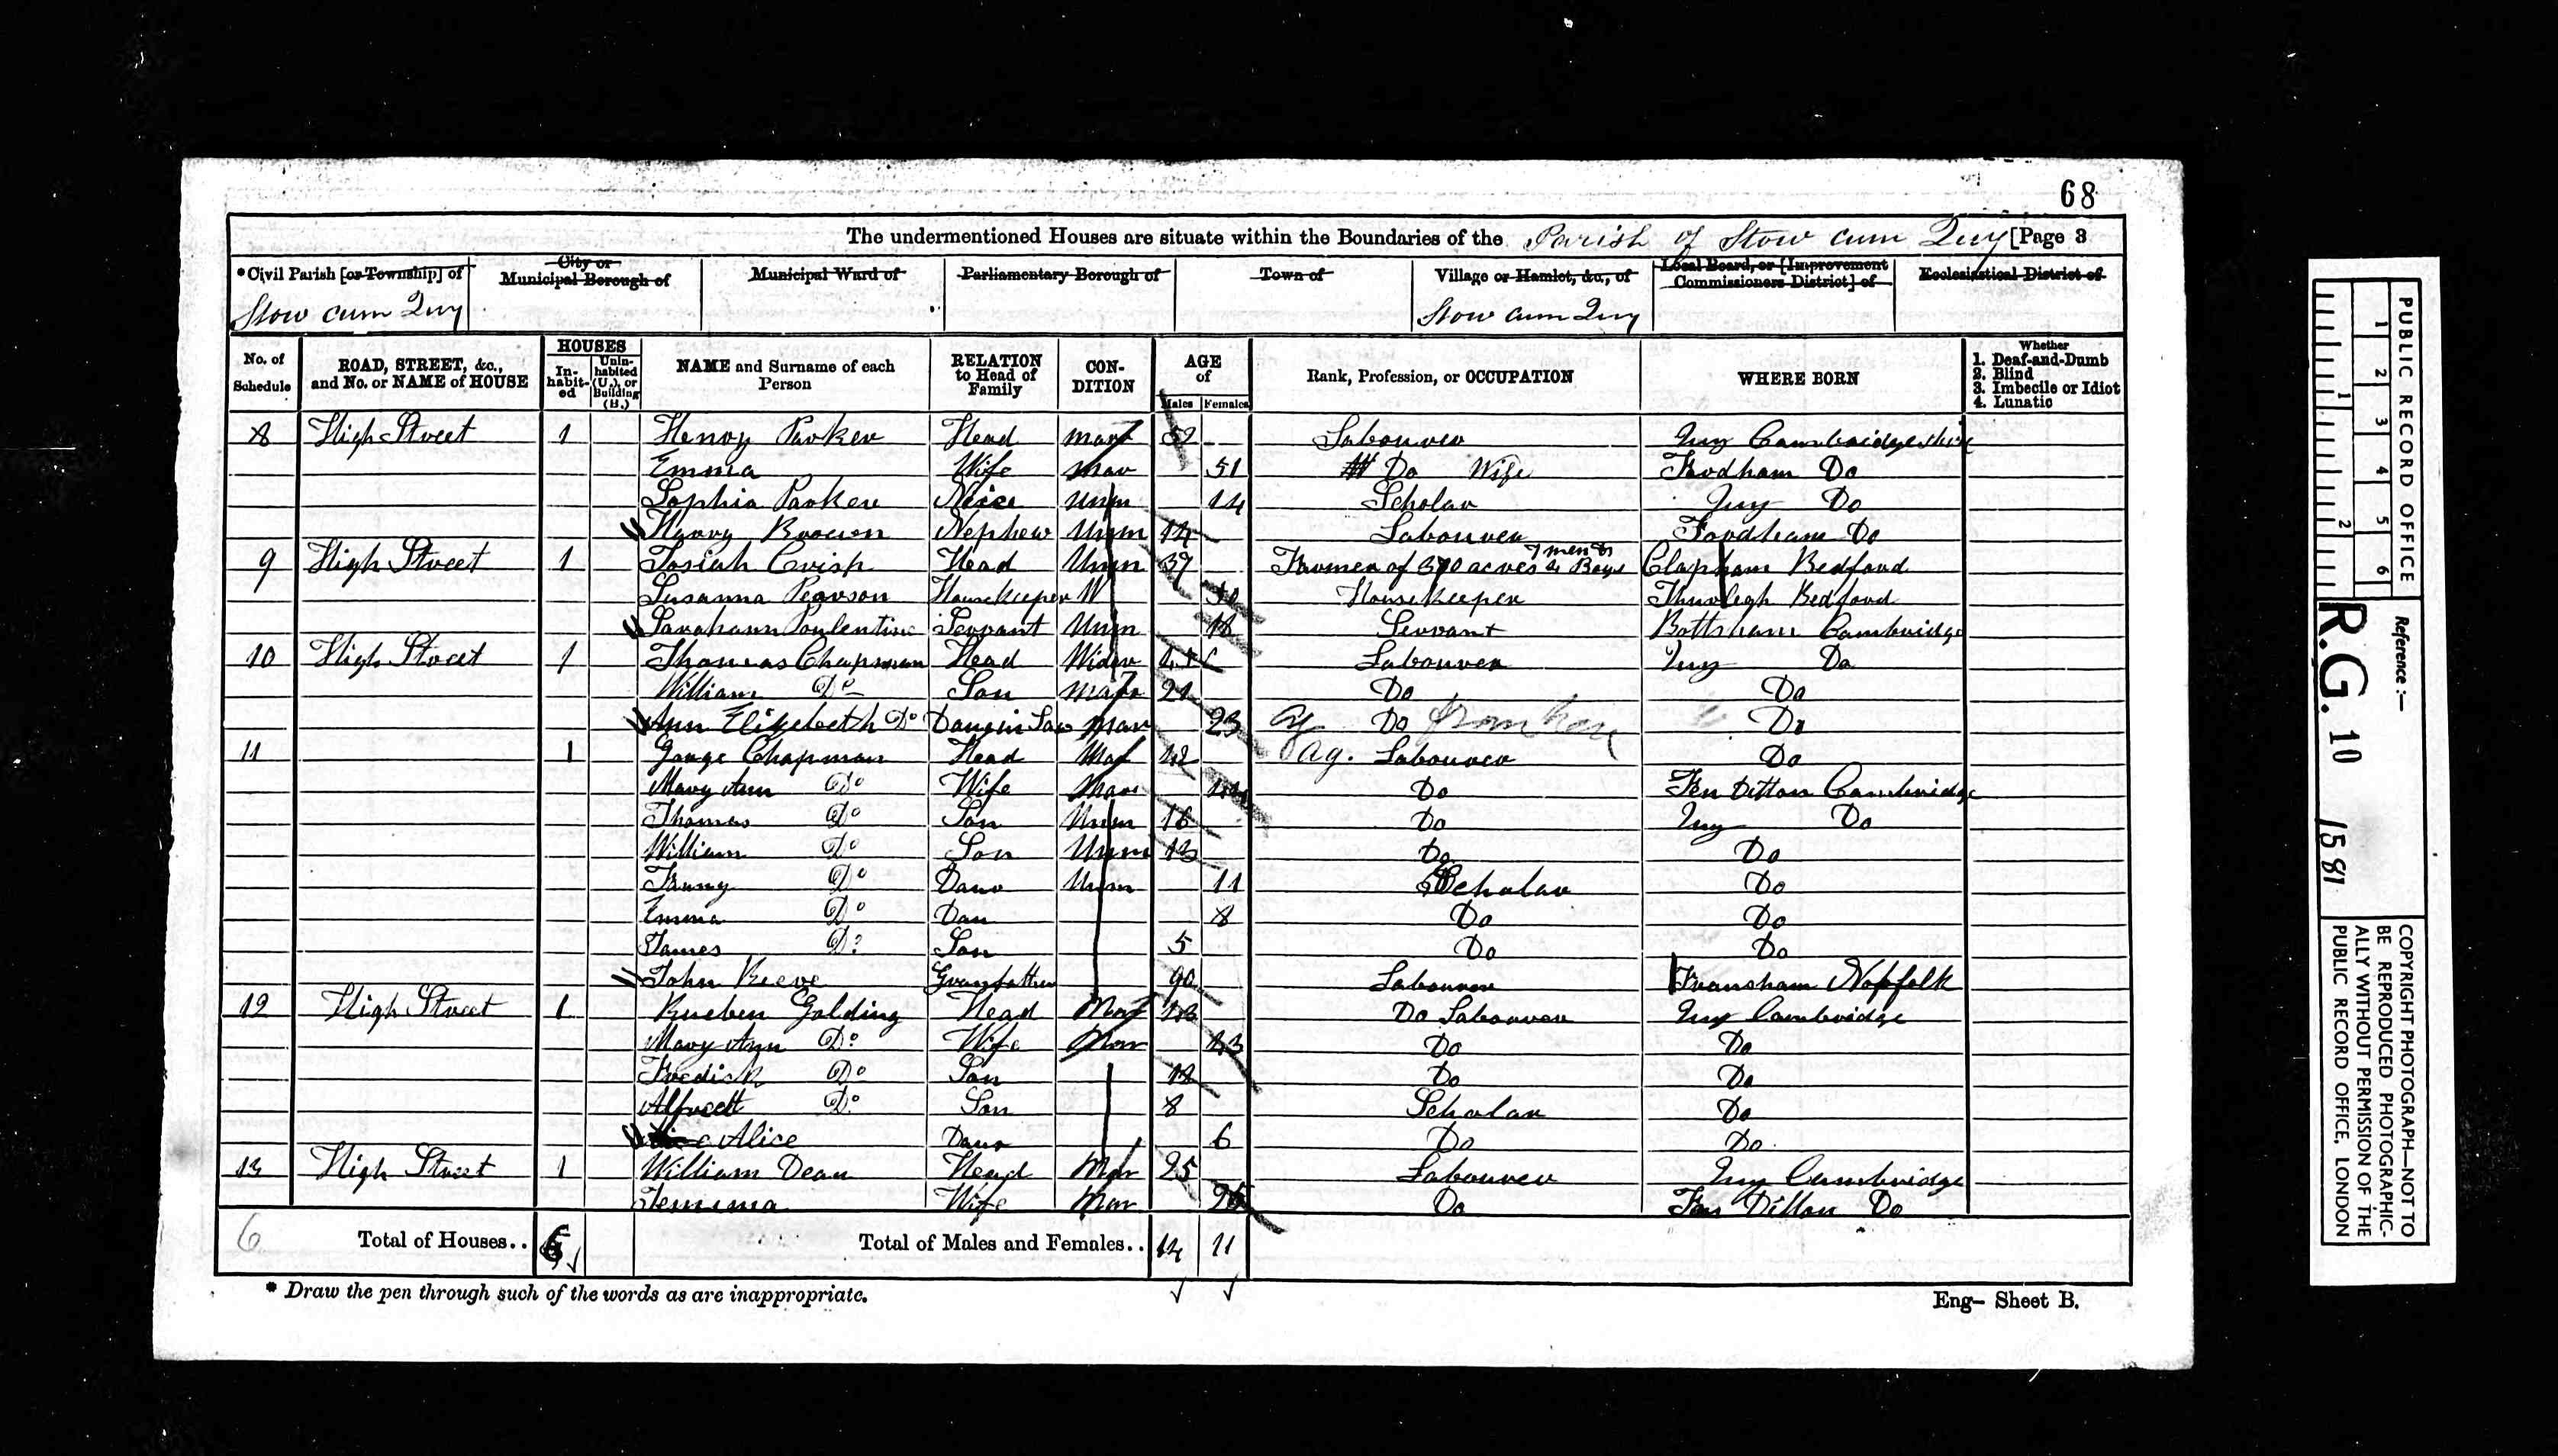 68
The undermentioned Houses are situate within the Boundaries of the Parish of Stow cum Quy [Page 3
*Civil Parish [or Township] of
City or Municipal Borough of
Municipal Ward of
Parliamentary Borough of
Town of
Village or Hamlet, &c., of
Local Board, or [Improvement Commissioners District] of
Ecclesiastical District of
Stow cum Quy
Stow cum Quy
No. of Schedule
ROAD, STREET, &c., and No. or NAME of HOUSE
HOUSES
In-habit-ed
Unin-habited (U.), or Building (B.)
NAME and Surname of each Person
RELATION to Head of Family
CON-DITION
AGE of
Males
Females
Rank, Profession, or OCCUPATION
WHERE BORN
Whether
1. Deaf-and-Dumb
2. Blind
3. Imbecile or Idiot
4. Lunatic
8 High Street 1 Henry Parker Head Mar Labourer Quy Cambridgeshire
Emma Wife Mar 51 Do Wife Fordham Do
Sophia Parker Neice Unm 14 Scholar Quy Do
Harry Brown Nephew Unm 14 Labourer Fordham Do
9 High Street 1 Josiah Crisp Head Unm 37 Farmer of 370 acres 7 men & 4 Boys Clapham Bedford
Susanna Pearson Housekeeper W Housekeeper Thurleigh Bedford
Sarahann Servant Unm 18 Servant Bottsham Cambridge
10 High Street 1 Thomas Chapman Head Widr Labourer Quy Do
William Do Son Mar 21 Do Do
Ann Elizebeth Do Dau in Law Mar 23 Do Do
11 1 George Chapman Head Mar 42 Ag. Labourer Do
Mary Ann Do Wife Mar 44 Do Fen Ditton Cambridge
Thomas Do Son Unm 16 Do Quy Do
William Do Son Unm 13 Do Do
Fanny Do Daur Unm 11 Scholar Do
Emma Do Dau 8 Do Do
James Do Son 5 Do Do
John Reeve Granfather 90 Labourer Fransham Norfolk
12 High Street 1 Rueben Golding Head Mar 48 Do Labourer Quy Cambridge
Mary Ann Do Wife Mar 43 Do Do
Fredick Do Son 12 Do Do
Alfred Do Son 8 Scholar Do
Alice Daur 6 Do Do
13 High Street 1 William Dean Head Mar 25 Labourer Quy Cambridge
Jemima Wife Mar 26 Do Fen Ditton Do
6 Total of Houses.. 6
Total of Males and Females.. 14 11
* Draw the pen through such of the words as are inappropriate.
Eng- Sheet B.
PUBLIC RECORD OFFICE
1 2 3 4 5 6
1 2
Reference:-
R.G. 10 1581
COPYRIGHT PHOTOGRAPH—NOT TO
BE REPRODUCED PHOTOGRAPHIC-
ALLY WITHOUT PERMISSION OF THE
PUBLIC RECORD OFFICE, LONDON